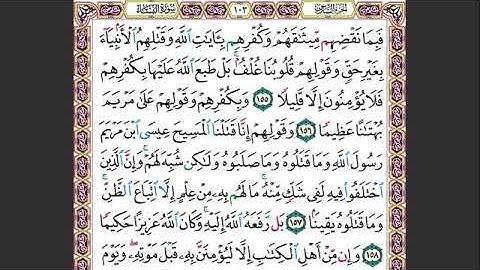 الجزء السادس ١٠٣ سورة النساء
فَبِمَا نَقْضِهِم مِّيثَٰقَهُمْ وَكُفْرِهِم بِـَٔايَٰتِ ٱللَّهِ وَقَتْلِهِمُ ٱلْأَنۢبِيَآءَ
بِغَيْرِ حَقٍّ وَقَوْلِهِمْ قُلُوبُنَا غُلْفٌۢ ۚ بَلْ طَبَعَ ٱللَّهُ عَلَيْهَا بِكُفْرِهِمْ
فَلَا يُؤْمِنُونَ إِلَّا قَلِيلًا ١٥٥ وَبِكُفْرِهِمْ وَقَوْلِهِمْ عَلَىٰ مَرْيَمَ
بُهْتَٰنًا عَظِيمًا ١٥٦ وَقَوْلِهِمْ إِنَّا قَتَلْنَا ٱلْمَسِيحَ عِيسَى ٱبْنَ مَرْيَمَ
رَسُولَ ٱللَّهِ وَمَا قَتَلُوهُ وَمَا صَلَبُوهُ وَلَٰكِن شُبِّهَ لَهُمْ ۚ وَإِنَّ ٱلَّذِينَ
ٱخْتَلَفُوا۟ فِيهِ لَفِى شَكٍّ مِّنْهُ ۚ مَا لَهُم بِهِۦ مِنْ عِلْمٍ إِلَّا ٱتِّبَاعَ ٱلظَّنِّ ۚ
وَمَا قَتَلُوهُ يَقِينًۢا ١٥٧ بَل رَّفَعَهُ ٱللَّهُ إِلَيْهِ ۚ وَكَانَ ٱللَّهُ عَزِيزًا حَكِيمًا
١٥٨ وَإِن مِّنْ أَهْلِ ٱلْكِتَٰبِ إِلَّا لَيُؤْمِنَنَّ بِهِۦ قَبْلَ مَوْتِهِۦ ۖ وَيَوْمَ